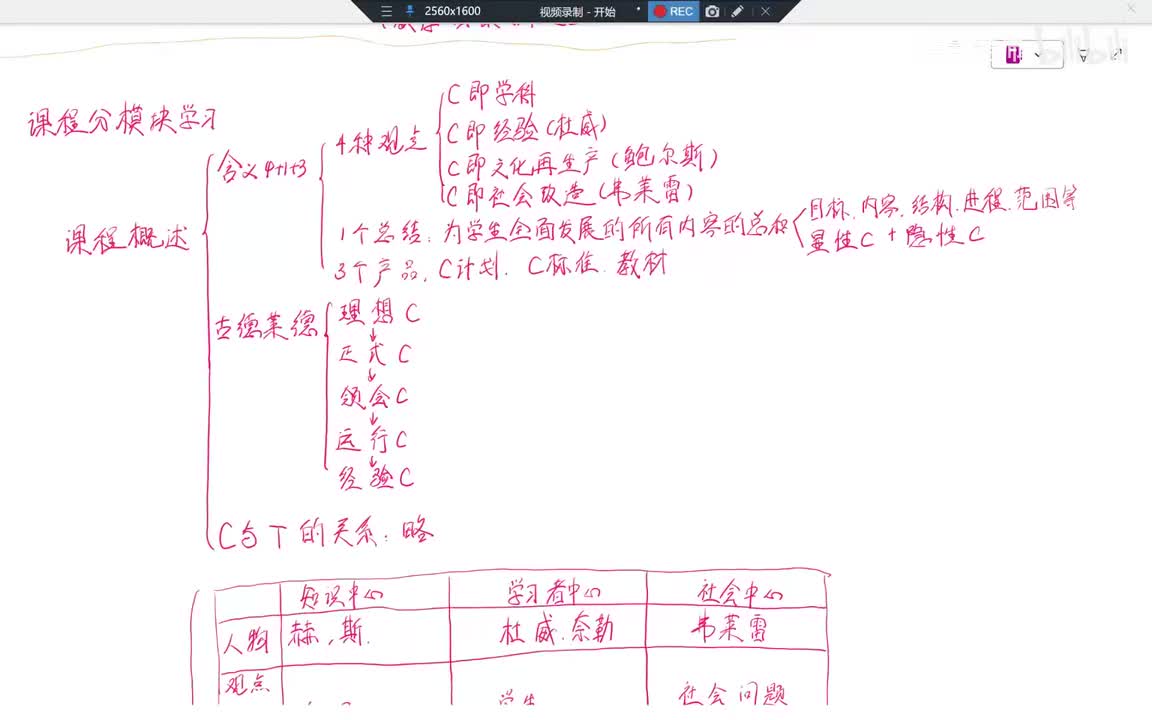 2560x1600 视频录制 - 开始 REC
bilibili
课程分模块学习
课程概述
含义4+1+3
4种观点
C即学科
C即经验(杜威)
C即文化再生产(鲍尔斯)
C即社会改造(韦莱雷)
1个总结:为学生全面发展的所有内容的总和
目标、内容、结构、进程、范围等
显性C + 隐性C
3个产品,C计划. C标准.教材
古德莱德
理想C
↓
正式C
↓
领会C
↓
运行C
↓
经验C
C与T的关系:略
知识中心 学习者中心 社会中心
人物 赫,斯. 杜威.奈勒 韦莱雷
观点 社会问题